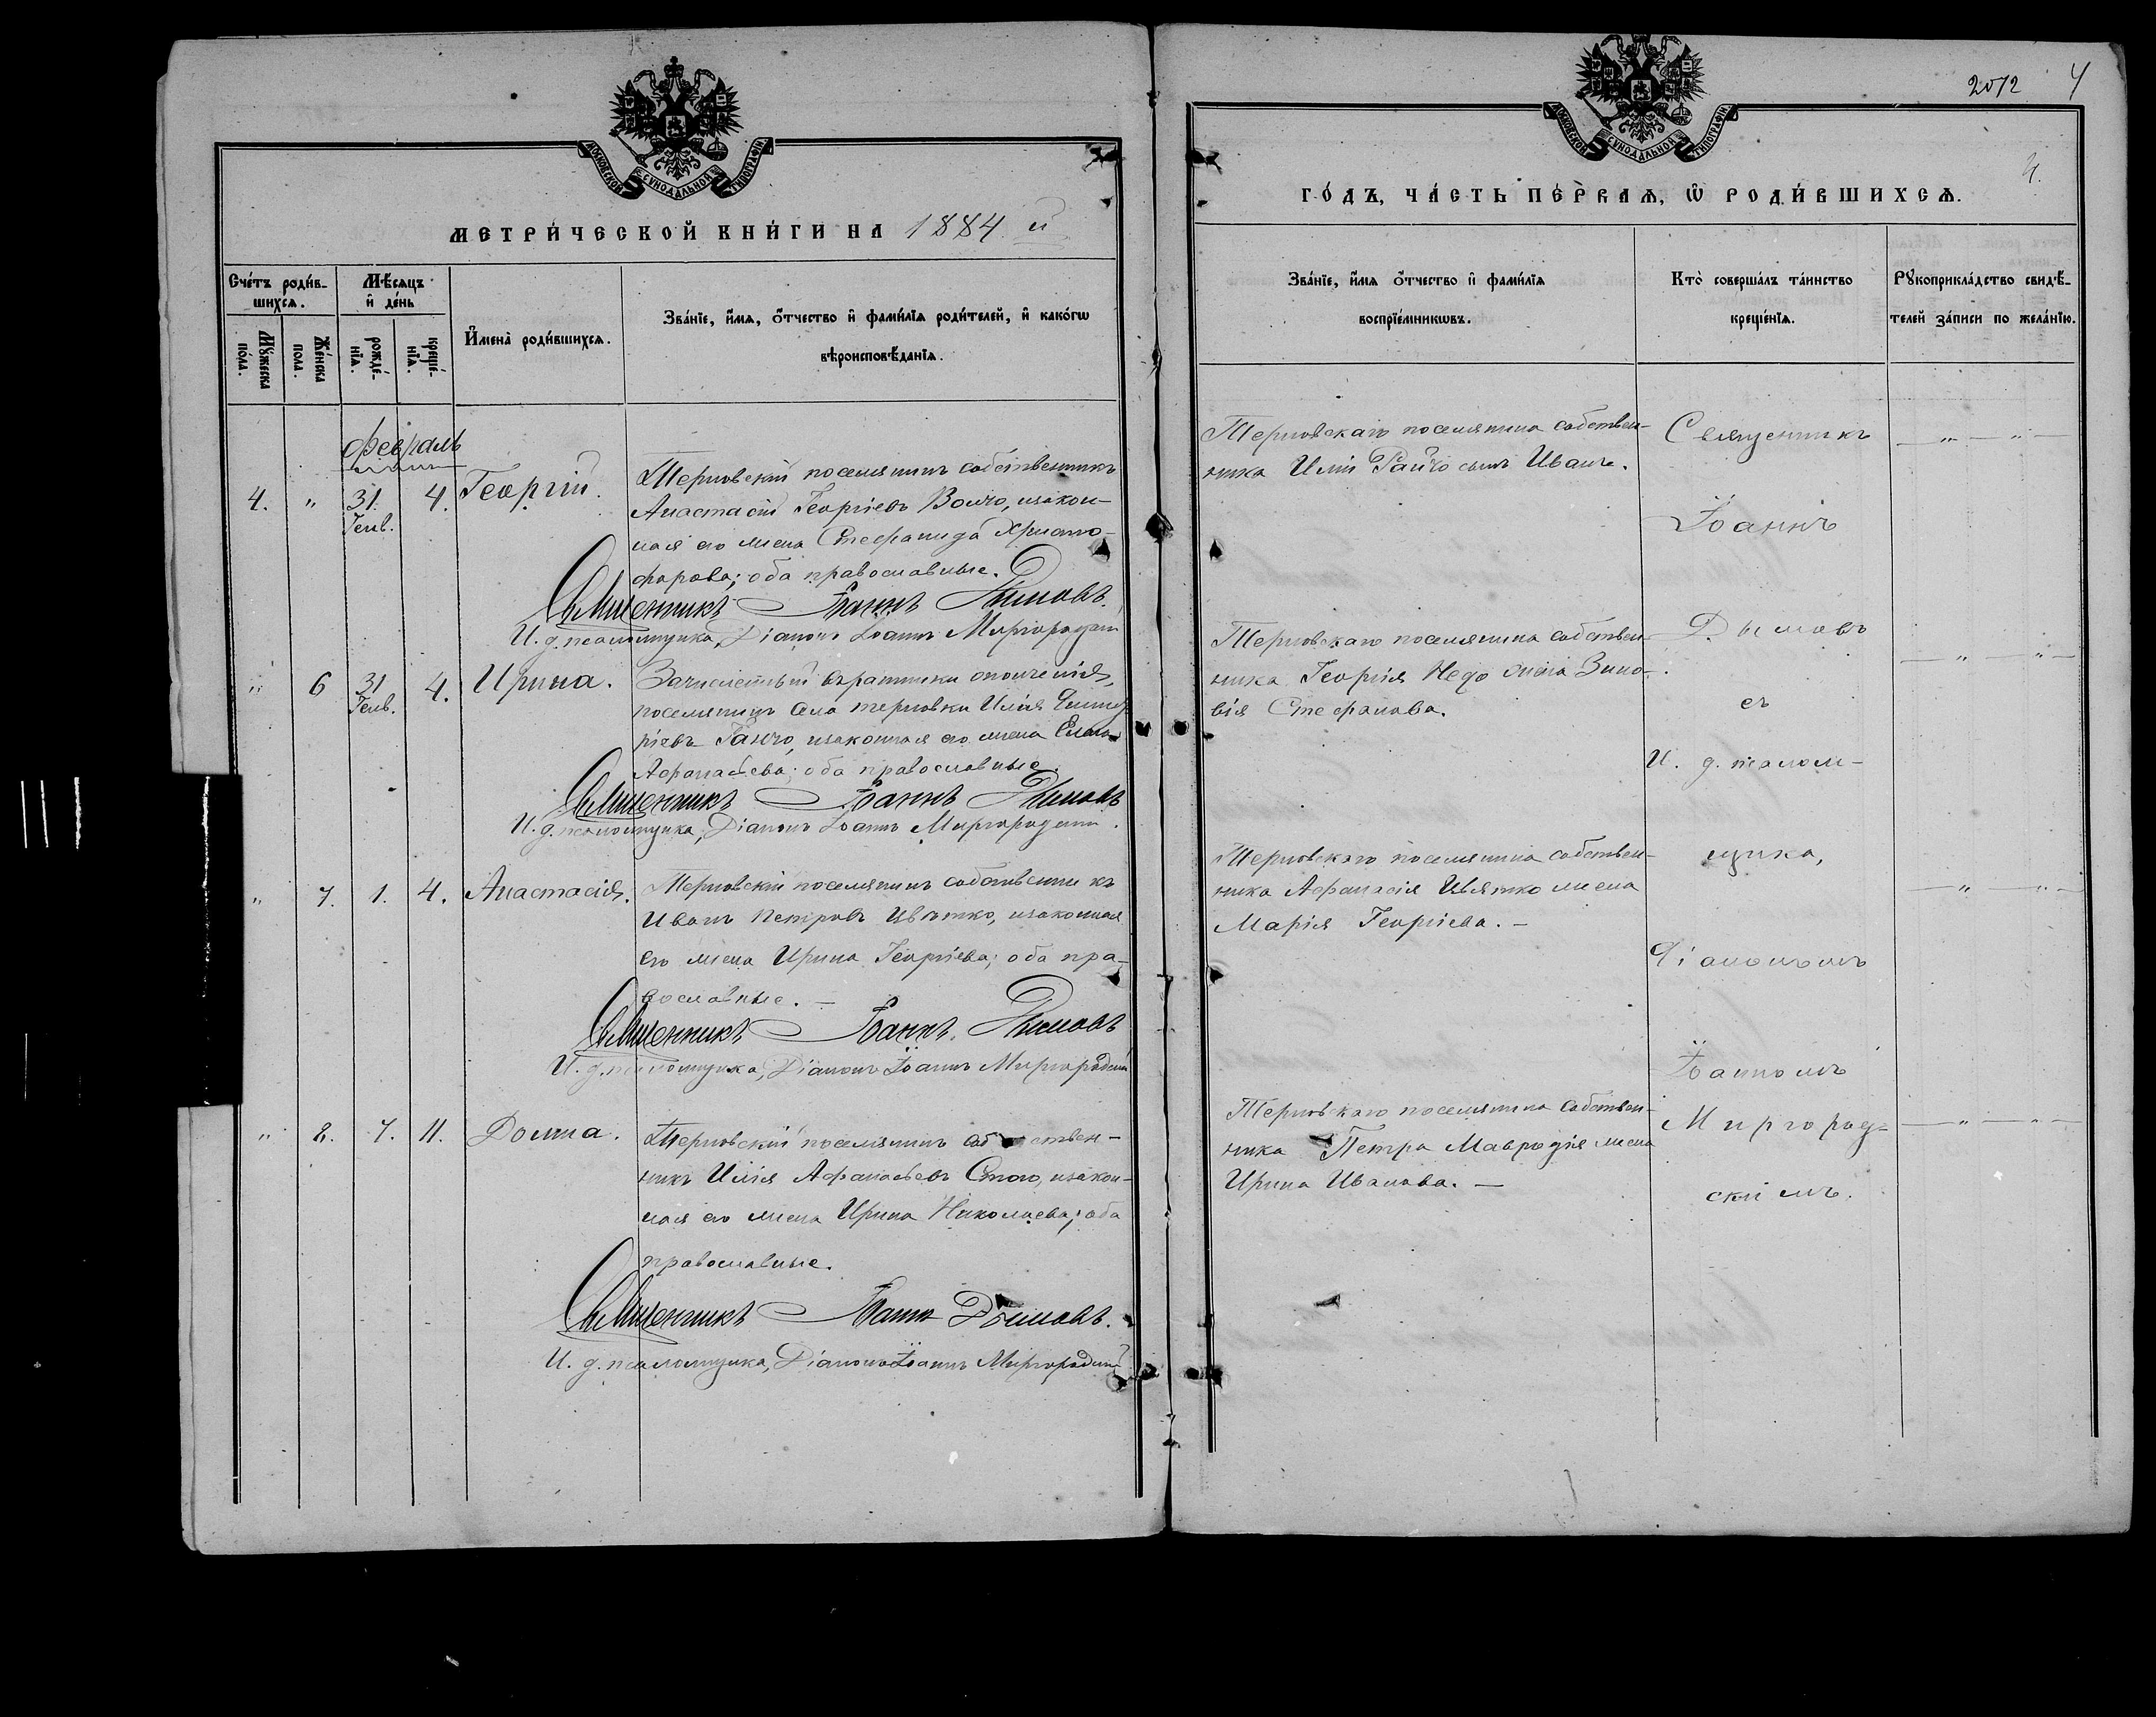 МОСКОВСКОЙ СѴНОДАЛЬНОЙ ТИПОГРАФІИ
МЕТРИ́ЧЕСКОЙ КНИ́ГИ НА 1884 й
Сче́тъ роди́в-
шихсѧ.
Мѣ́сѧцъ
и҆ де́нь
Мꙋ́жеска
по́ла.
Же́нска
пола.
рожде́-
нїѧ.
креще́-
нїѧ.
И҆мена̀ роди́вшихсѧ.
Зва́нїе, и҆́мѧ, ѻ҆́тчество и҆ фами́лїѧ роди́телей, и҆ како́гѡ
вѣроисповѣ́данїѧ.
Февраль
4. " 31. Генв. 4. Георгій.
Терновскій поселянинъ собственникъ
Анастасій Георгіевъ Волчо, изакон-
ная его жена Стефанида Христо-
форова; оба православные.
Священникъ Іоаннъ Дымовъ.
И. д. псаломщика, Діаконъ Іоаннъ Миргородскій
" 6 31 Генв. 4. Ирина.
Зачисленный въ ратники ополченія,
поселянинъ села терновки Илія Димит
ріевъ Ганчо, изаконная его жена Елена
Афанасьева; оба православные.
Священникъ Іоаннъ Дымовъ
И. д. псаломщика, Діаконъ Іоаннъ Миргородскій.
" 7. 1. 4. Анастасія.
Терновскій поселянинъ собственникъ
Иванъ Петровъ Цвѣтко, изаконная
его жена Ирина Георгіева; оба пра-
вославные. —
Священникъ Іоаннъ Дымовъ
И. д. псаломщика, Діаконъ Іоаннъ Миргородскій
" 8. 7. 11. Домна.
Терновскій поселянинъ собственн-
никъ Илія Афанасьевъ Стою, изакон-
ная его жена Ирина Николаева; оба
православные.
Священникъ Іоаннъ Дымовъ.
И. д. псаломщика, Діаконъ Іоаннъ Миргородскій
2072 4
4.
МОСКОВСКОЙ СѴНОДАЛЬНОЙ ТИПОГРАФІИ
ГО́ДЪ, ЧА́СТЬ ПЕ́РВАѦ, Ѡ҆ РОДИ́ВШИХСѦ.
Зва́нїе, и҆́мѧ ѻ҆́тчество и҆ фами́лїѧ
воспрїе́мникѡвъ.
Кто̀ соверша́лъ та́инство
креще́нїѧ.
Рꙋкоприкла́дство свидѣ́-
телей за́писи по жела́нїю.
Терновскаго поселянина собствен-
ника Иліи Райчо сынъ Иванъ.
Терновскаго поселянина собствен-
ника Георгія Недо жена Зино-
вія Стефанова.
Терновскаго поселянина собствен-
ника Афанасія Цвятко жена
Марія Георгіева. —
Терновскаго поселянина собствен-
ника Петра Мавродія жена
Ирина Иванова. —
Священникъ
Іоаннъ
Дымовъ
съ
И. д. псалом-
щика,
Діакономъ
Іоанномъ
Миргород-
скимъ.
— " — " —
— " — " —
— " — " —
— " — " —